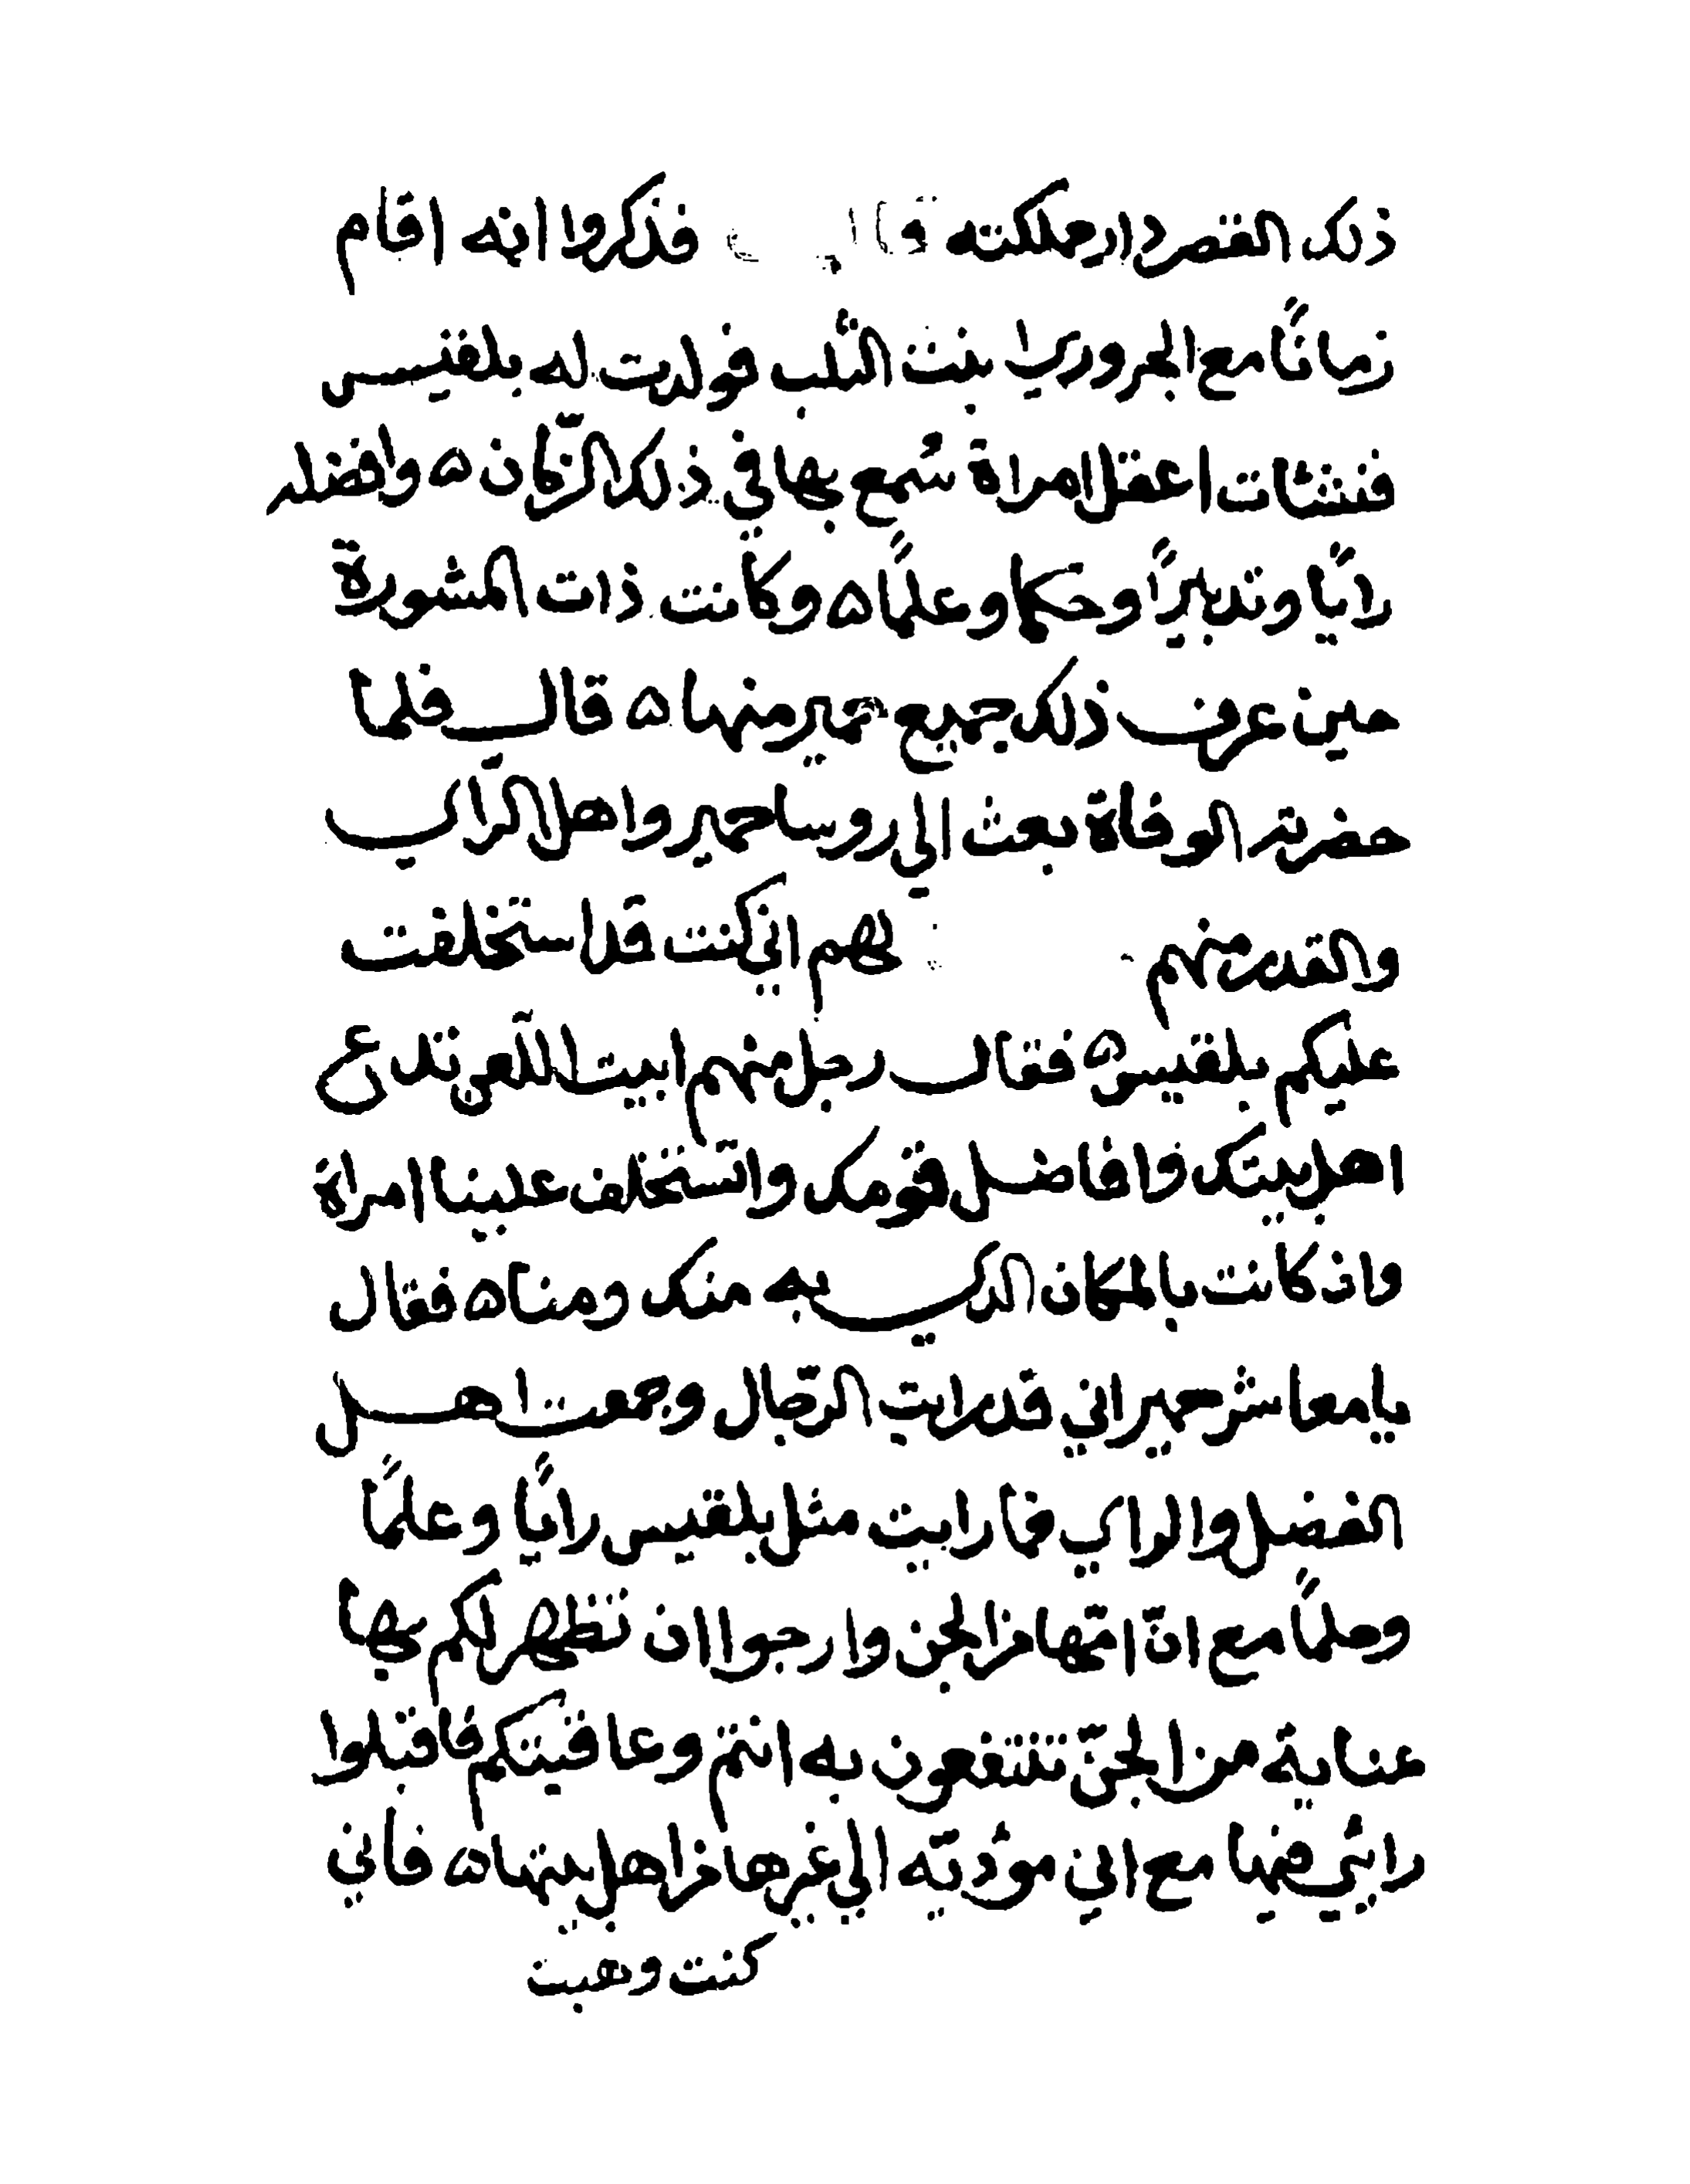 ذلك القصر دار مملكته فذكروا انه اقام
زمانًا مع الجرورى ا بنت الثلب فولدت له بلقيس
فنشات اعقل امراة سُمع بها في ذلك الزّمان ۵ وافضله
رايًا وتدبيرًا وحكما وعلمًا ۵ وكانت ذات المشورة
حين عرف ذلك جميع حمير منها ۵ قال فلما
حضرته الوفاة بعث الي روسا حمير واهل الرّاي
والقدر منهم لهم اني كنت قد استخلفت
عليكم بلقيس ۵ فقال رجل منهم ابيت اللّعن تدع
اهل بيتك وافاضل قومك واتستخلف علينا امراة
وان كانت بالمكان الذي به منك ومنا ۵ فقال
يا معاشر حمير اني قد رايت الرّجال وجمعت اهل
الفضل والراي فما رايت مثل بلقيس رايًا وعلمًا
وحلمًا مع انّ امّها من الجن وارجوا ان تظهر لكم بها
عناية من الجنّ تنتفعون به انتم وعاقبتكم فاقبلوا
رايي فيها مع اني مودّيه الي غيرها من اهل بيتها ۵ فاني
كنت وهبت